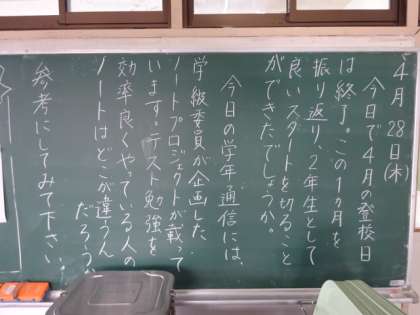 4月28日(木)
今日で4月の登校日
は終了。この1ヵ月を
振り返り、2年生として
良いスタートを切ること
ができたでしょうか。
今日の学年通信には、
学級委員が企画した
ノートプロジェクトが載って
います。テスト勉強を
効率良くやっている人の
ノートはどこが違うん
だろう?
参考にしてみて下さい。